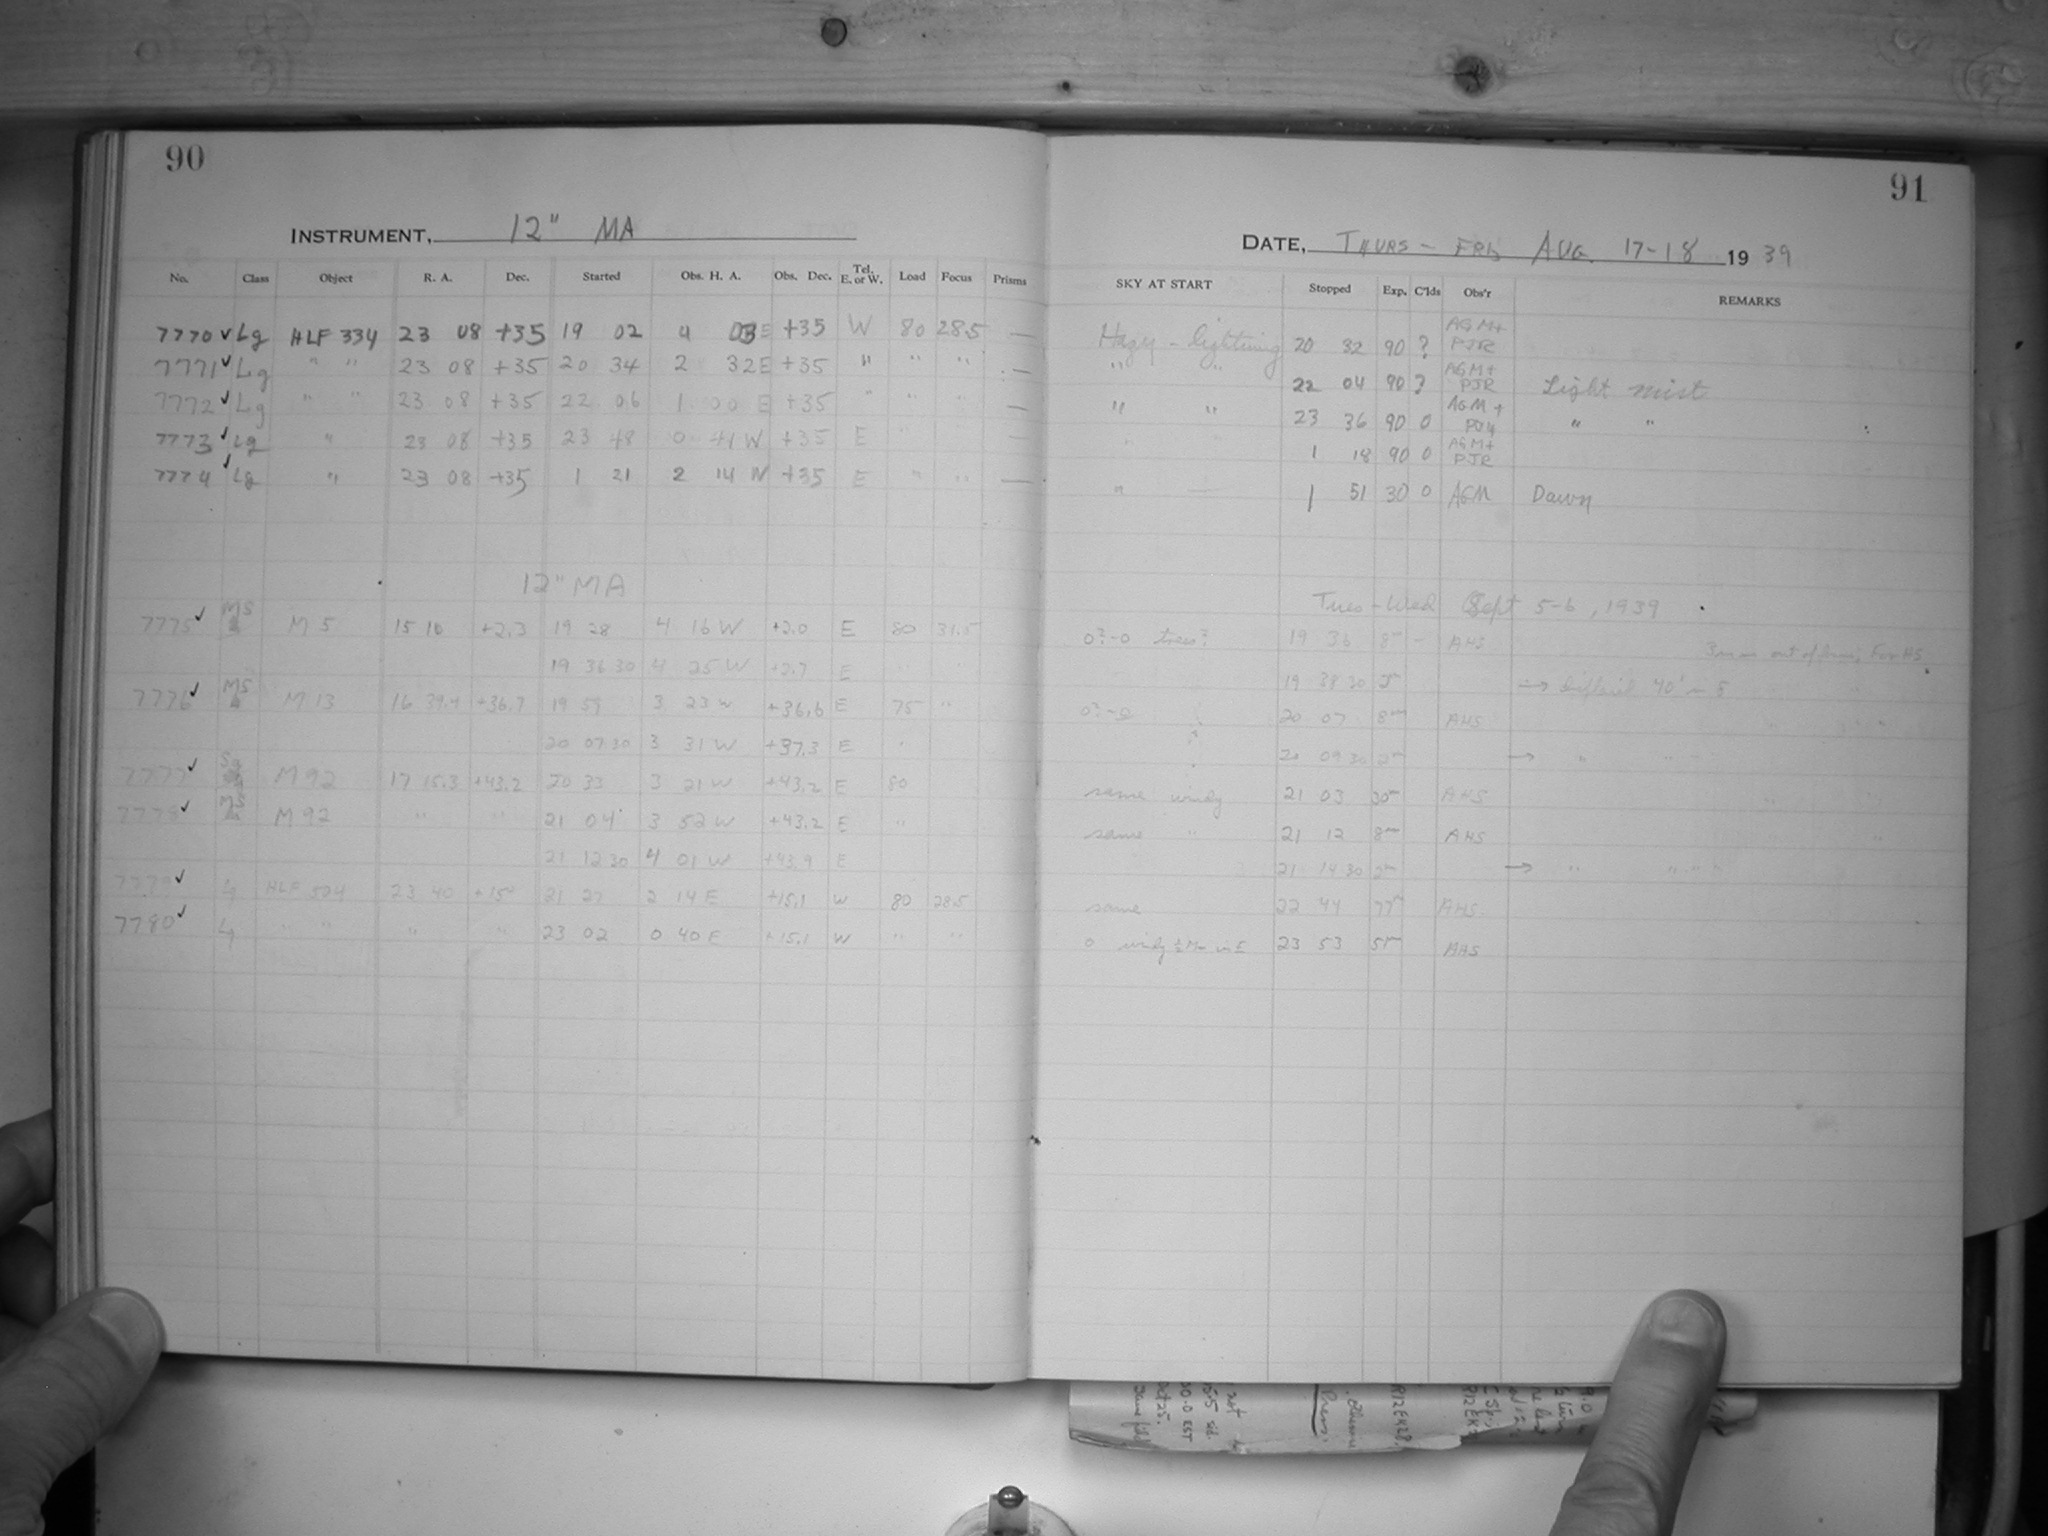 90
INSTRUMENT, 12" MA
No. Class Object R. A. Dec. Started Obs. H. A. Obs. Dec. Tel. E. or W. Load Focus Prisms
7770 ✓ Lg HLF 334 23 08 +35 19 02 4 03 E +35 W 80 28.5 —
7771 ✓ Lg " " 23 08 +35 20 34 2 32 E +35 " " " —
7772 ✓ Lg " " 23 08 +35 22 06 1 00 E +35 " " " —
7773 ✓ Lg " 23 08 +35 23 48 0 41 W +35 E " —
7774 ✓ Lg " 23 08 +35 1 21 2 14 W +35 E " " —
12" MA
7775 ✓ MS M 5 15 16 +2.3 19 28 4 16 W +2.0 E 80 31.5
19 36 30 4 25 W +2.7 E " "
7776 ✓ MS M 13 16 39.4 +36.7 19 59 3 23 W +36.6 E 75 "
20 07 30 3 31 W +37.3 E "
7777 ✓ M 92 17 15.3 +43.2 20 33 3 21 W +43.2 E 80
7778 ✓ MS M 92 " " 21 04 3 52 W +43.2 E "
21 12 30 4 01 W +43.9 E
7779 ✓ HLF 23 40 +15 21 27 2 14 E +15.1 W 80 28.5
7780 ✓ " " " " 23 02 0 40 E +15.1 W " "
91
DATE, THURS - FRI, AUG. 17-18 1939
SKY AT START Stopped Exp. C'lds Obs'r REMARKS
Hazy - lightning 20 32 90 ? AGM + PJR
" " 22 04 90 ? AGM + PJR Light mist
" " 23 36 90 0 AGM + PJR " "
" " 1 18 90 0 AGM + PJR
" — 1 51 30 0 AGM Dawn
Tues - Wed Sept 5-6, 1939
0?-0 trees? 19 36 8m – AHS 3 mm out of focus, For HS.
19 38 30 2m → 40'
0?-0 20 07 8m AHS
20 09 30 2m → "
same windy 21 03 30m AHS
same " 21 12 8m AHS
21 14 30 2m → " " " "
same 22 44 77m AHS
0 windy 23 53 51m AHS